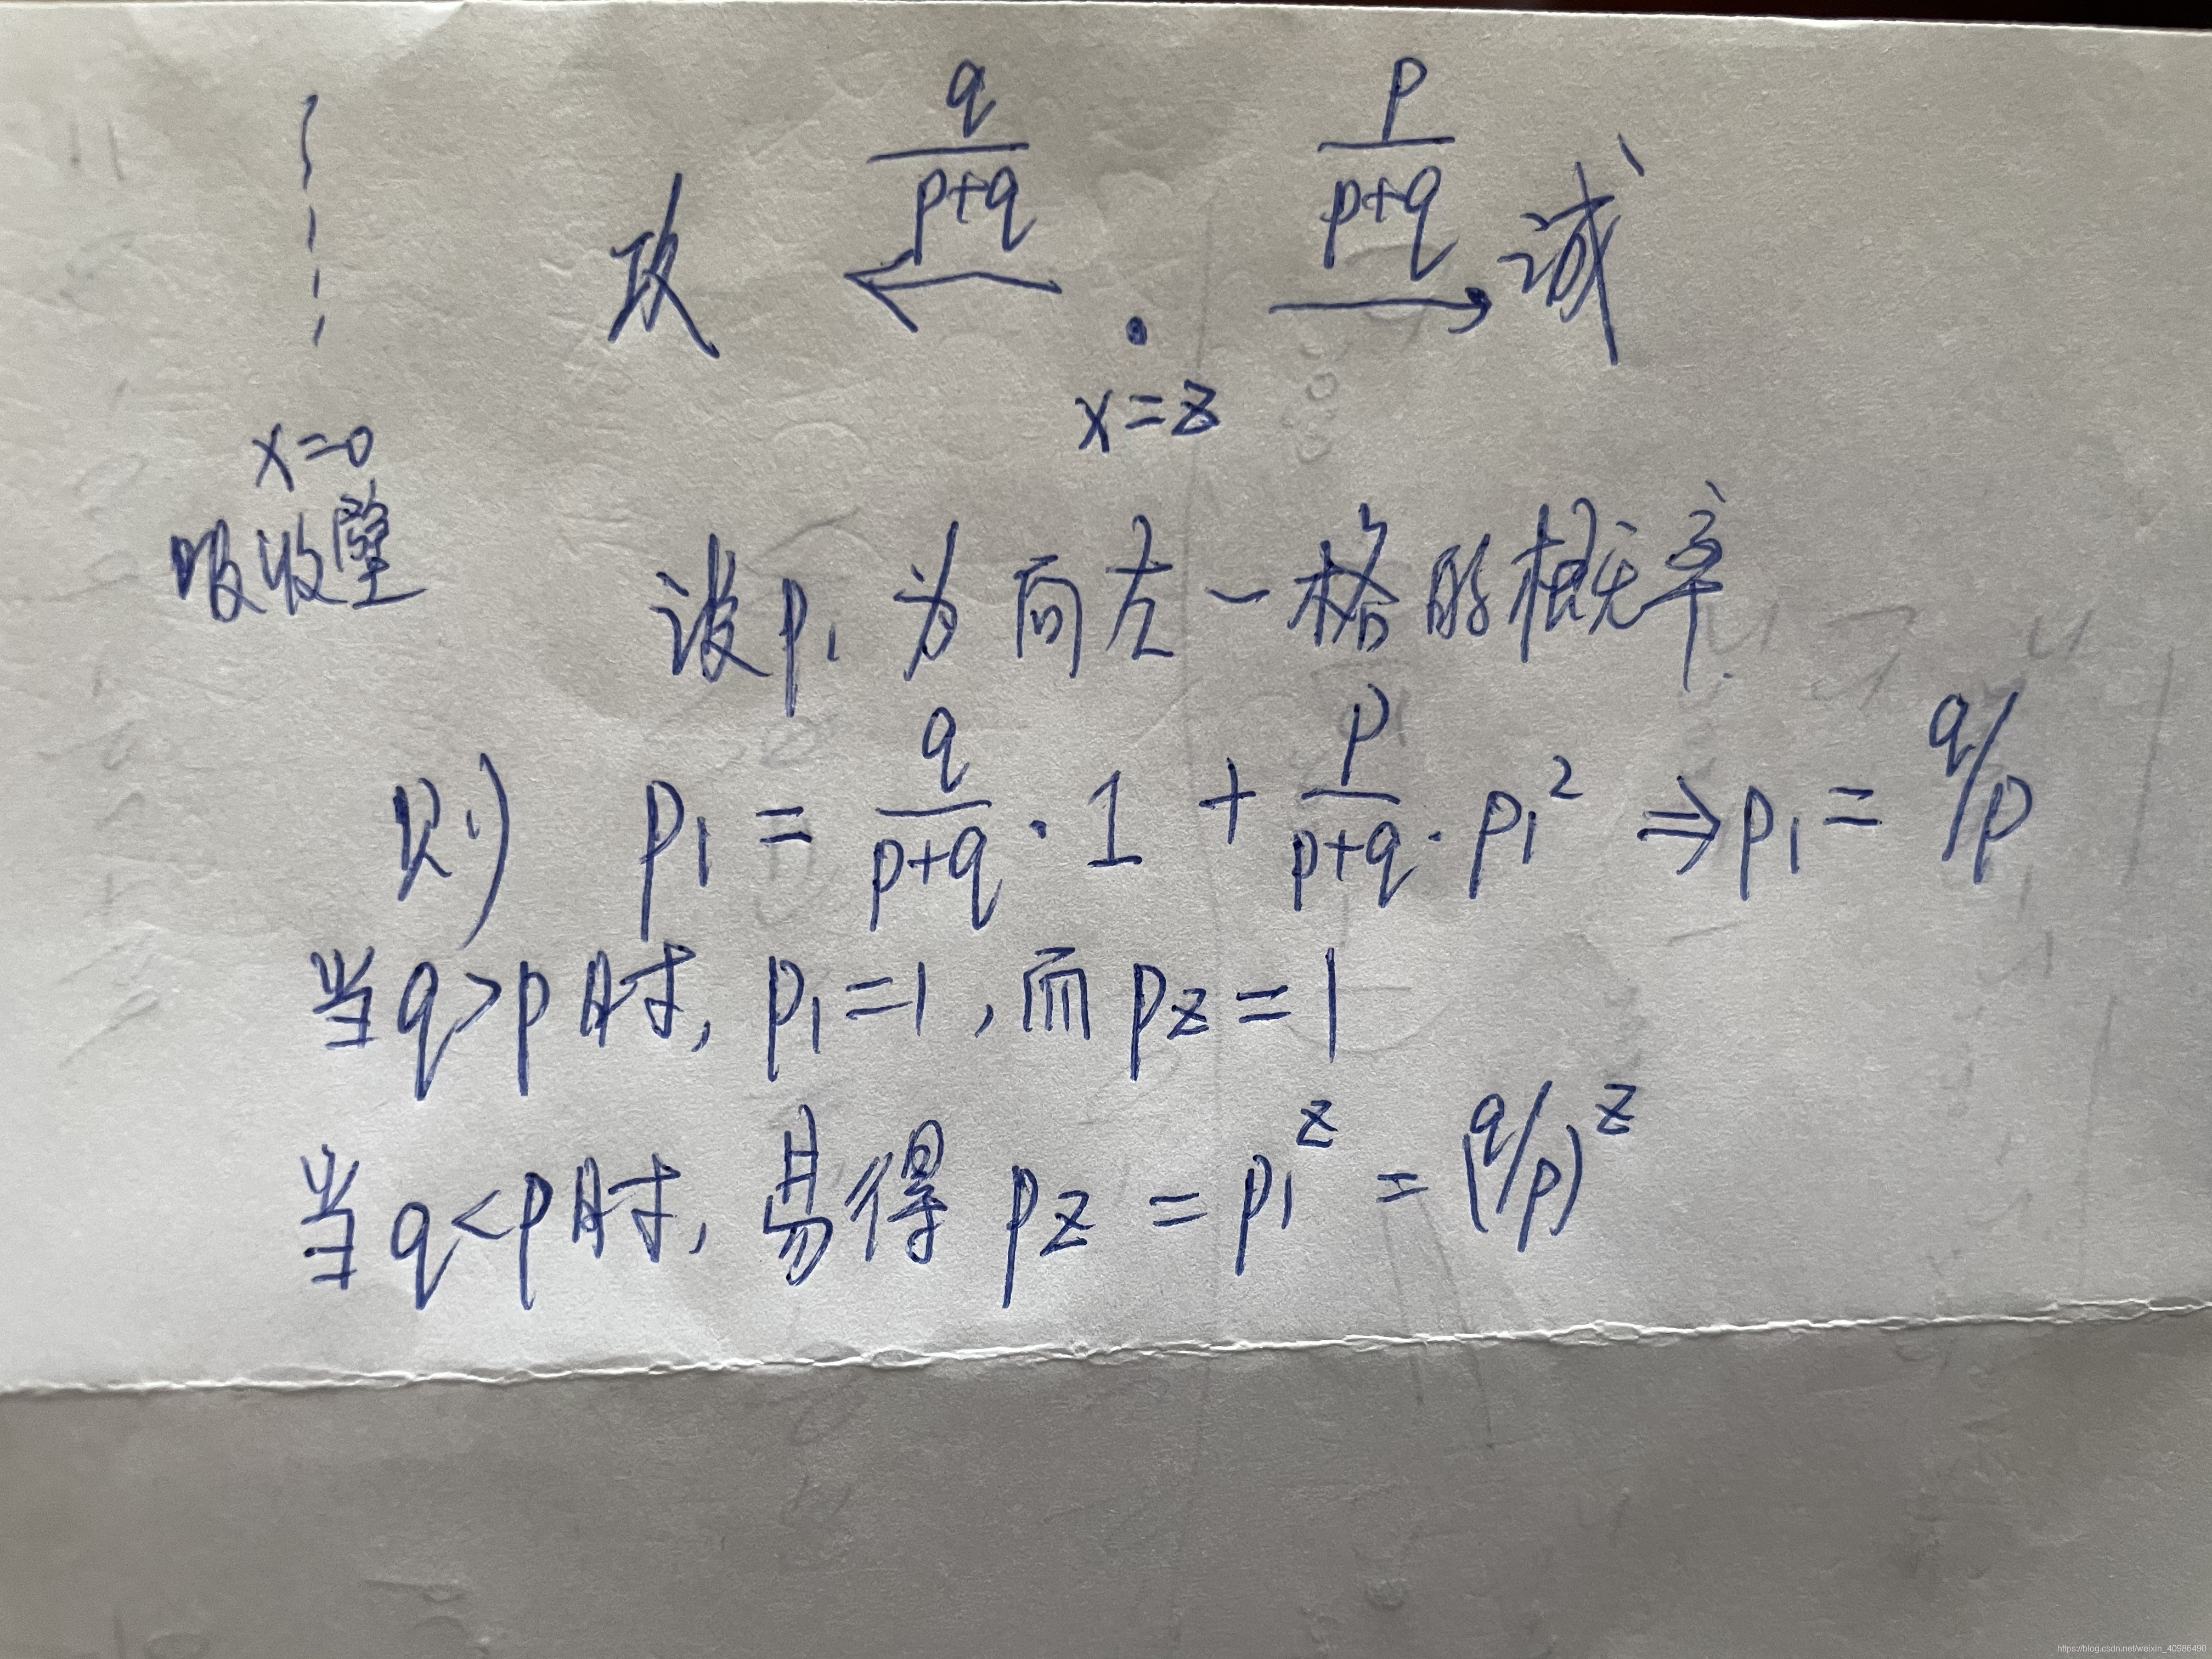 攻 q/(p+q) ← · → p/(p+q) 诚
x=z
x=0
吸收壁
设p₁为向左一格的概率
则 p₁ = q/(p+q) · 1 + p/(p+q) · p₁² ⇒ p₁ = q/p
当q>p时, p₁=1, 而pz=1
当q<p时, 易得 pz = p₁^z = (q/p)^z
https://blog.csdn.net/weixin_40986490